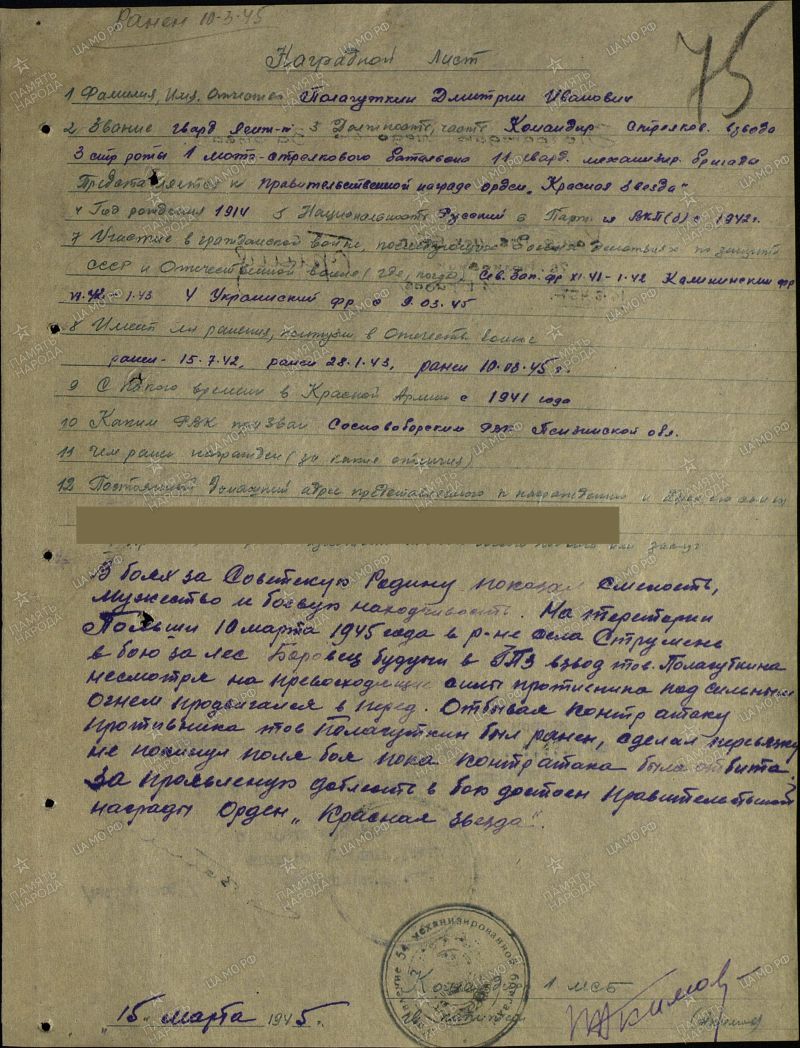 Ранен 10-3-45
75
Наградной лист
1 Фамилия, Имя, Отчество Полагуткин Дмитрий Иванович
2 Звание гвард лейт-т 3 Должность, часть Командир стрелков. взвода
3 стр роты 1 мото-стрелкового батальона 11 гвард. механизир. бригады
Представляется к правительственной награде орден „Красная звезда"
4 Год рождения 1914 5 Национальность Русский 6 Парт ВКП(б) с 1942г.
7 Участие в гражданской войне, последующих боевых действиях по защите
СССР и Отечественной войне (где, когда) Сев. Зап. фр XI-41-1.42 Калининский фр
1.43 4 Украинский фр с 9.03.45
8 Имеет ли ранения, контузии в Отечеств войне
ранен - 15.7.42, ранен 28.1.43, ранен 10.03.45 г.
9 С какого времени в Красной Армии с 1941 года
10 Каким РВК призван Сосновоборским РВК Пензинской обл.
11 Чем ранее награжден (за какие отличия)
12 Постоянный домашний адрес представляемого к награждению и адрес его семьи
В боях за Советскую Родину показал смелость,
мужество и боевую находчивость. На територии
Польши 10 марта 1945 года в р-не села Струмень
в бою за лес Боровец будучи в ГПЗ взвод тов. Полагуткина
несмотря на превосходящие силы противника под сильным
огнем продвигался в перед. Отбивая контратаку
противника тов Полагуткин был ранен, сделал перевязку
не покинул поля боя пока контратака была отбита.
За проявленую доблесть в бою достоен правительственной
награды Орден „Красная звезда".
54 механизированной
Командир 1 мсб
гв. капитан
"15" марта 1945г.
ПАМЯТЬ НАРОДА
ЦАМО.РФ